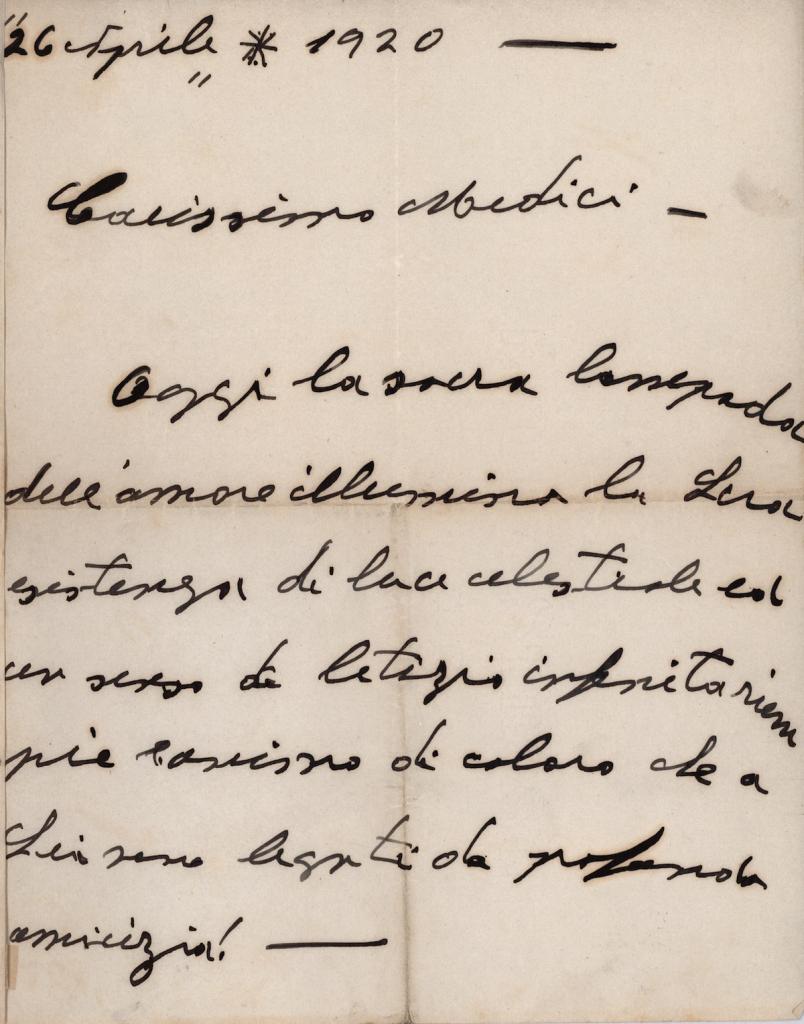 26 Aprile * 1920 —
Carissimo Medici —
Oggi la sacra lampada
dell'amore illumina la Sua
esistenza di luce celestiale ed
un senso di letizia infinita riem
pie l'animo di coloro che a
Lei sono legati da profonda
amicizia! —